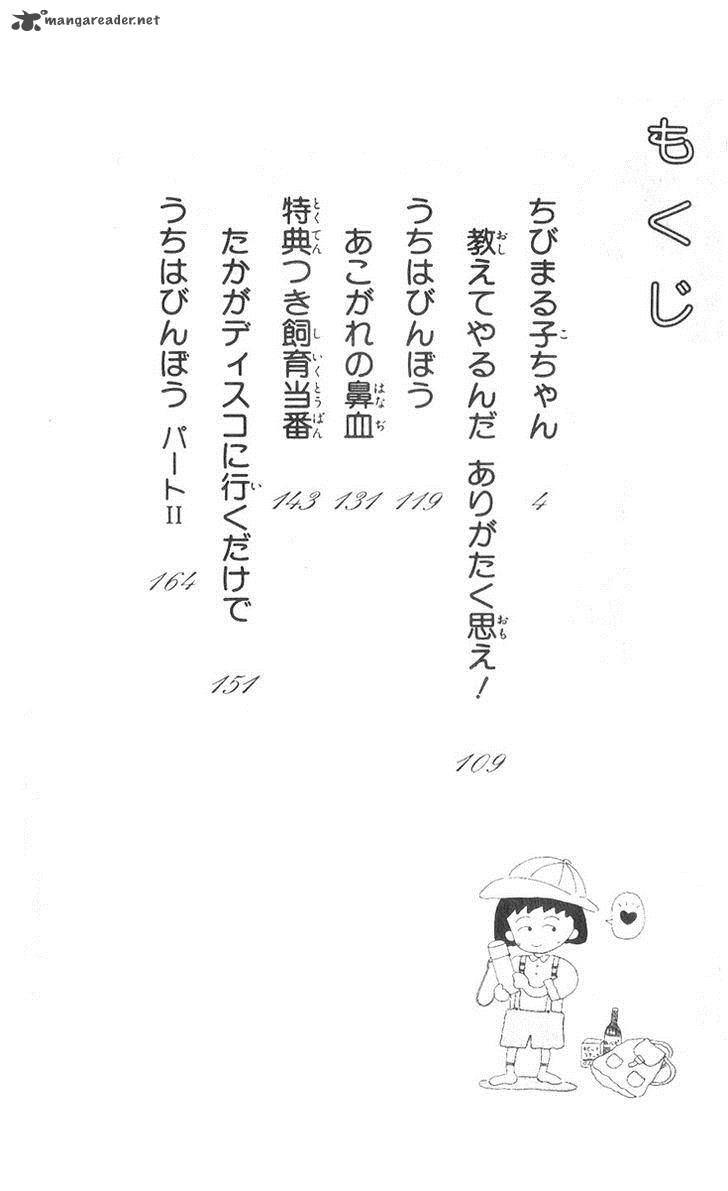 mangareader.net
もくじ
ちびまる子ちゃん
4
教えてやるんだ ありがたく思え!
109
うちはびんぼう
119
あこがれの鼻血
131
特典つき飼育当番
143
たかがディスコに行くだけで
151
うちはびんぼう パートII
164